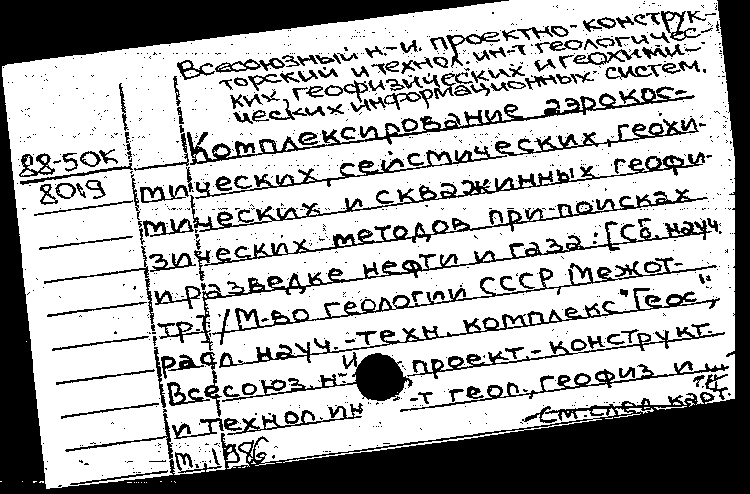 Всесоюзный н.-и. проектно-конструк-
торский и технол. ин-т геологичес-
ких, геофизических и геохими-
ческих информационных систем.
Комплексирование аэрокос-
88-50К
8019
мических, сейсмических, геохи-
мических и скважинных геофи-
зических методов при поисках
и разведке нефти и газа: [Сб. науч.
тр.] / М-во геологии СССР, Межот-
расл. науч.-техн. комплекс "Геос",
Всесоюз. н.-и. проект.-конструкт.
и технол. ин-т геол., геофиз. и
м., 1986.
см. след. карт.